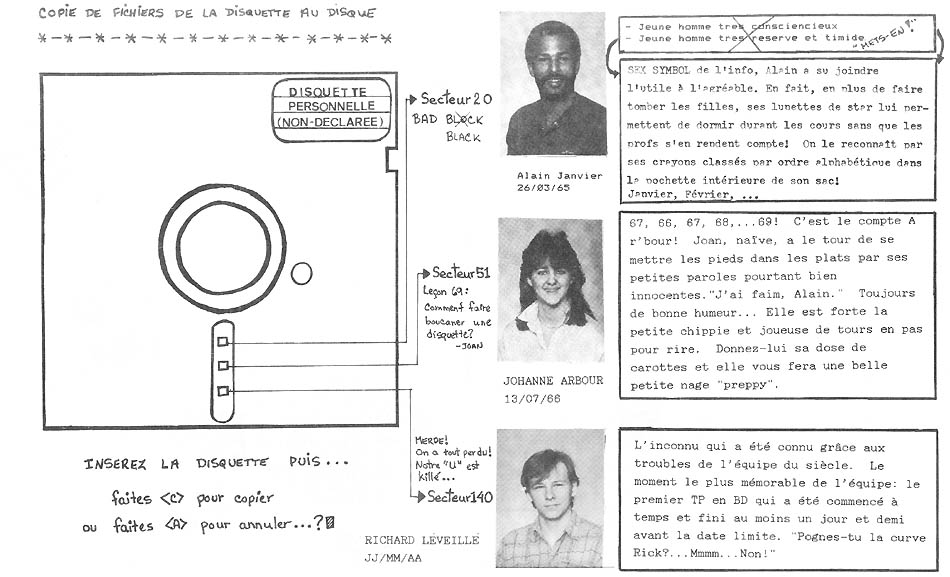 COPIE DE FICHIERS DE LA DISQUETTE AU DISQUE
*-*-*-*-*-*-*-*-*-*-*-*-*-*-*-*-*-*
DISQUETTE
PERSONNELLE
(NON-DECLAREE)
Secteur 20
BAD BLOCK
BLACK
Secteur 51
Leçon 69:
Comment faire
boucaner une
disquette?
-JOAN
MERDE!
On a tout perdu!
Notre "U" est
killé...
Secteur 140
INSEREZ LA DISQUETTE PUIS...
faites <C> pour copier
ou faites <A> pour annuler...?
Alain Janvier
26/03/65
- Jeune homme tres consciencieux
- Jeune homme tres reserve et timide
"METS-EN!"
SEX SYMBOL de l'info, Alain a su joindre
l'utile à l'agréable. En fait, en plus de faire
tomber les filles, ses lunettes de star lui per-
mettent de dormir durant les cours sans que les
profs s'en rendent compte! On le reconnaît par
ses crayons classés par ordre alphabétique dans
la pochette intérieure de son sac!
Janvier, Février, ...
JOHANNE ARBOUR
13/07/66
67, 66, 67, 68,...69! C'est le compte A
r'bour! Joan, naïve, a le tour de se
mettre les pieds dans les plats par ses
petites paroles pourtant bien
innocentes."J'ai faim, Alain." Toujours
de bonne humeur... Elle est forte la
petite chippie et joueuse de tours en pas
pour rire. Donnez-lui sa dose de
carottes et elle vous fera une belle
petite nage "preppy".
RICHARD LEVEILLE
JJ/MM/AA
L'inconnu qui a été connu grâce aux
troubles de l'équipe du siècle. Le
moment le plus mémorable de l'équipe: le
premier TP en BD qui a été commencé à
temps et fini au moins un jour et demi
avant la date limite. "Pognes-tu la curve
Rick?...Mmmm...Non!"